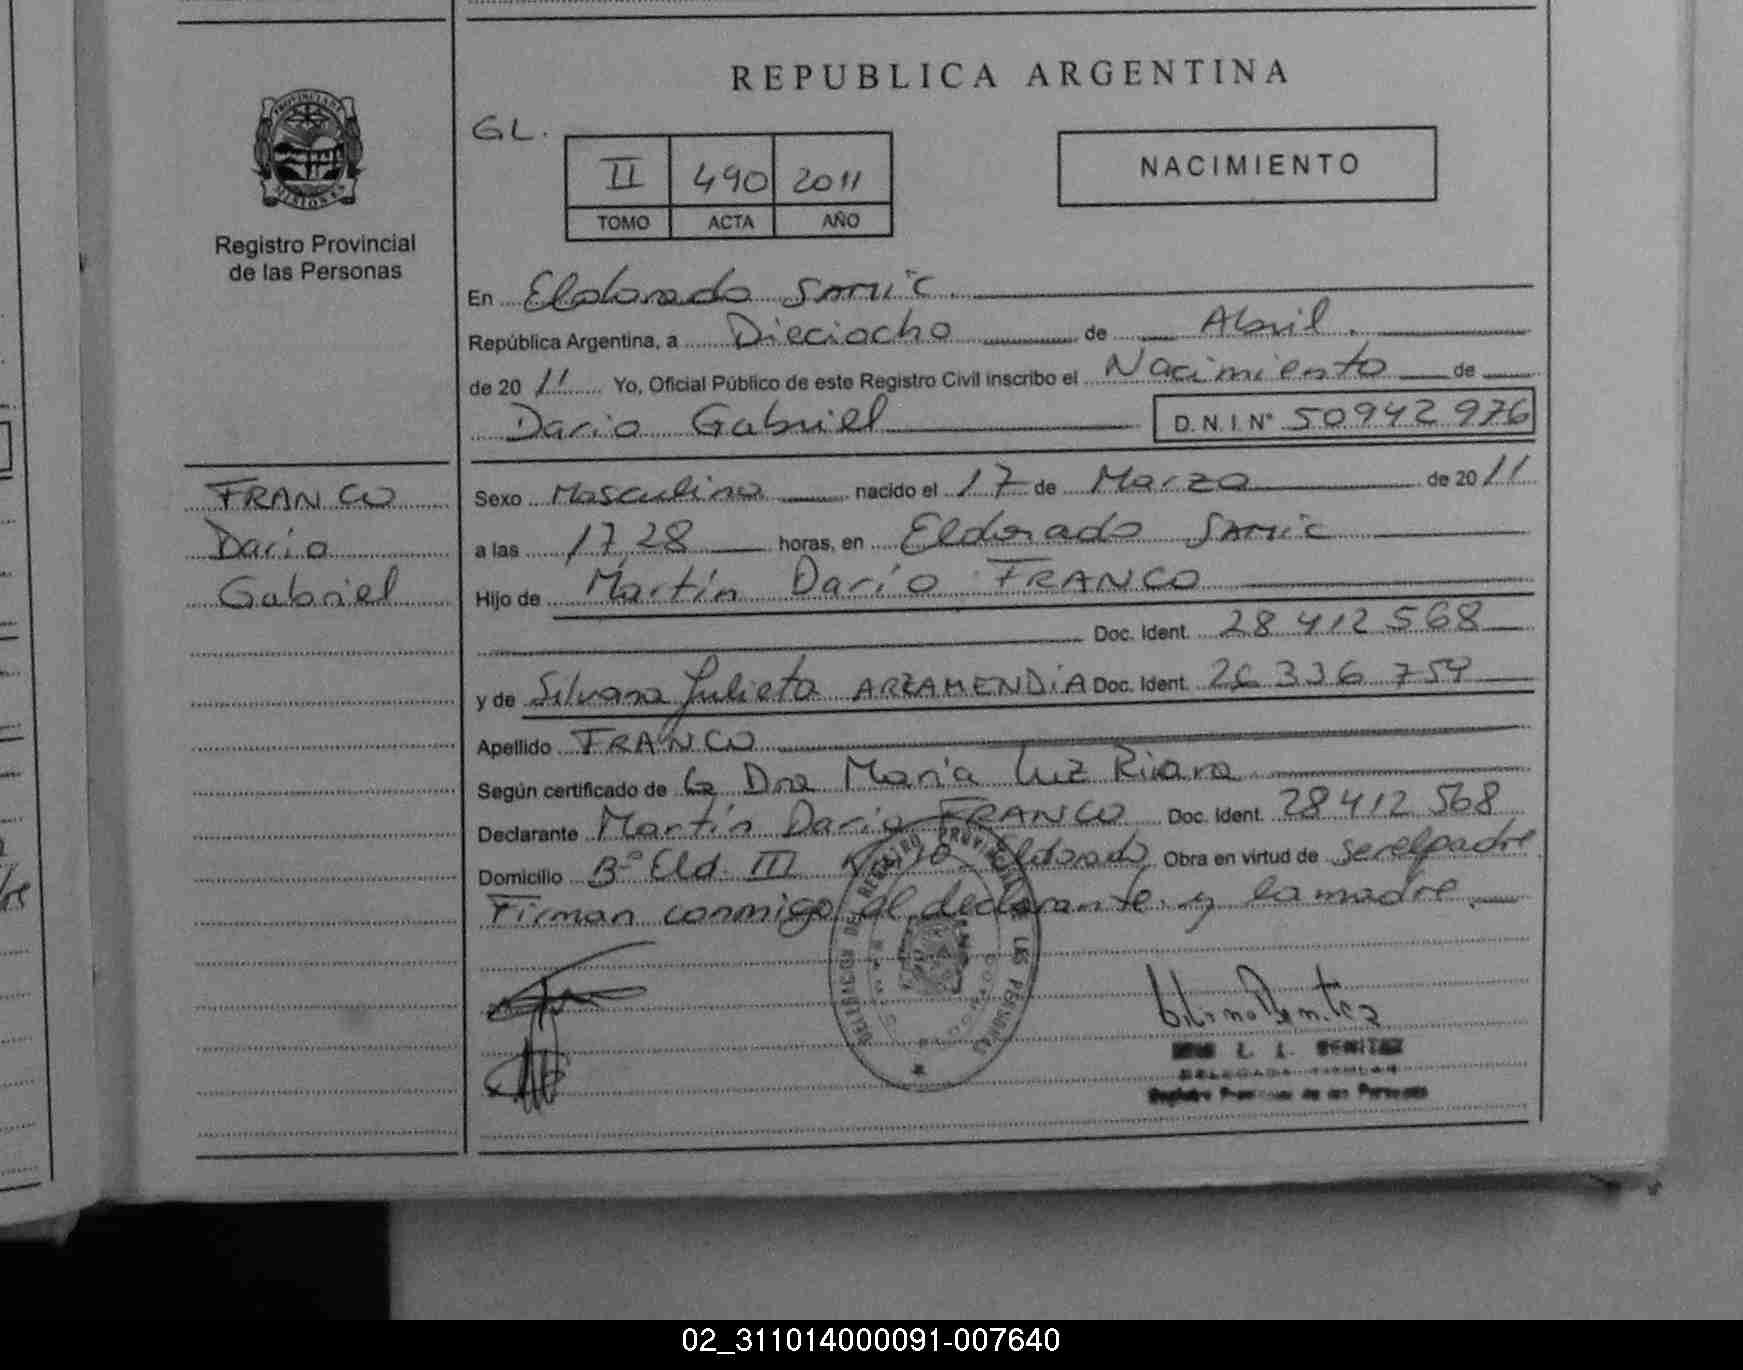 REPUBLICA ARGENTINA
GL.
II 490 2011
TOMO ACTA AÑO
NACIMIENTO
PROVINCIA DE
MISIONES
Registro Provincial
de las Personas
En Eldorado SAMIC.
República Argentina, a Dieciocho de Abril.
de 2011 Yo, Oficial Público de este Registro Civil inscribo el Nacimiento de
Dario Gabriel D.N.I. Nº 50942976
FRANCO
Dario
Gabriel
Sexo Masculino nacido el 17 de Marzo de 2011
a las 17,28 horas, en Eldorado SAMIC
Hijo de Martín Darío FRANCO
Doc. Ident. 28 412 568
y de Silvana Julieta ARZAMENDIA Doc. Ident. 26 336 759
Apellido FRANCO
Según certificado de la Dra Maria Luz
Declarante Martín Dario FRANCO Doc. Ident. 28 412 568
Domicilio Bº Eld. III Eldorado Obra en virtud de ser el padre
Firman conmigo el declarante y la madre.
DELEGACION DE REGISTRO PROVINCIAL DE LAS PERSONAS
L. I. BENITEZ
DELEGADA TITULAR
Registro Provincial de las Personas
02_311014000091-007640